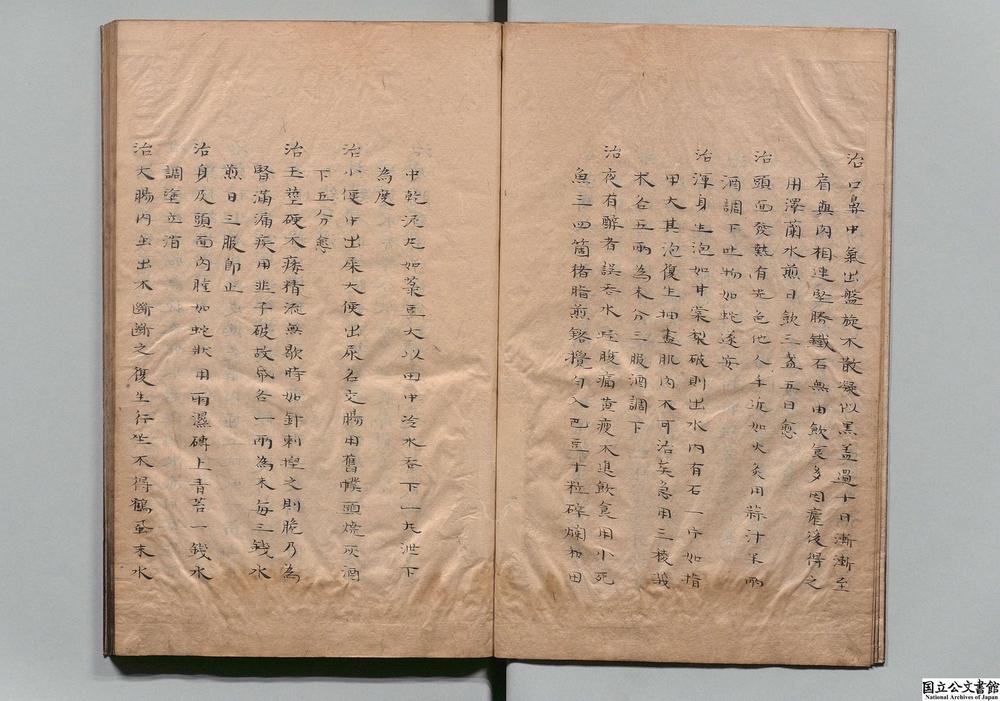 治口鼻中氣出盤旋不散凝似黑盖過十日漸漸至
肩與肉相連堅勝鐵石無由飲食多因瘧後得之
用澤蘭水煎日飲三盞五日愈
治頭面發熱有光色他人手近如火灸用蒜汁半兩
酒調下吐物如蛇遂安
治渾身生泡如甘棠梨破則出水內有石一片如指
甲大其泡復生抽盡肌肉不可治矣急用三棱莪
术各五兩為末分三服酒調下
治夜有醉者誤吞水蛭腹痛黄瘦不進飲食用小死
魚三四箇楮脂煎鎔攪勻入巴豆十粒碎爛和田
中乾泥丸如菉豆大以田中冷水吞下一丸泄下
為度
治小便中出屎大便出尿名交腸用舊幞頭燒灰酒
下五分愈
治玉莖硬不痿精流無歇時如針刺揑之則脆乃為
腎滿漏疾用韭子破故帋各一兩為末每三錢水
煎日三服即止
治身及頭面肉腫如蛇狀用雨濕磚上青苔一錢水
調塗立消
治大腸內虫出不斷斷之復生行坐不得鶴虱末水
国立公文書館
National Archives of Japan